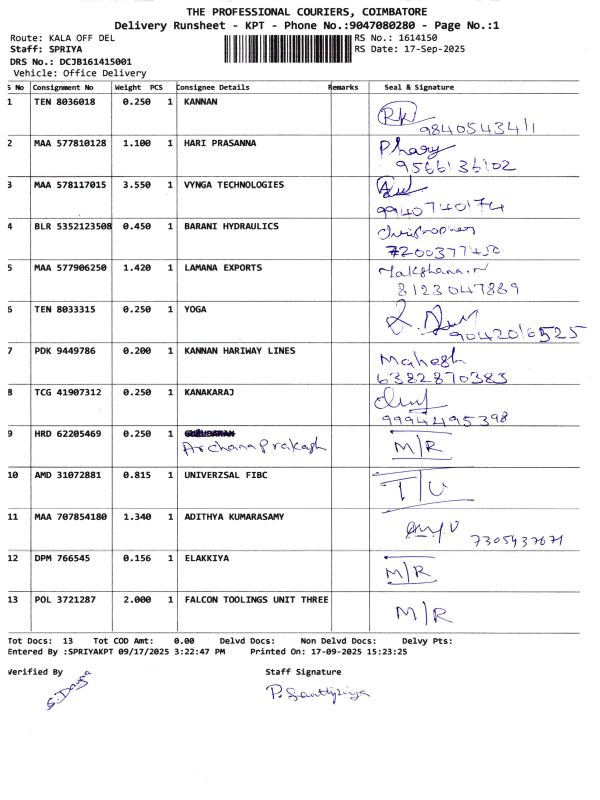 THE PROFESSIONAL COURIERS, COIMBATORE
Delivery Runsheet - KPT - Phone No.:9047080280 - Page No.:1
Route: KALA OFF DEL RS No.: 1614150
Staff: SPRIYA RS Date: 17-Sep-2025
DRS No.: DCJB161415001
Vehicle: Office Delivery
S No Consignment No Weight PCS Consignee Details Remarks Seal & Signature
1 TEN 8036018 0.250 1 KANNAN
9840543411
2 MAA 577810128 1.100 1 HARI PRASANNA
9566136102
3 MAA 578117015 3.550 1 VYNGA TECHNOLOGIES
9940740174
4 BLR 5352123508 0.450 1 BARANI HYDRAULICS
7200377450
5 MAA 577906250 1.420 1 LAMANA EXPORTS
8123047889
6 TEN 8033315 0.250 1 YOGA
9042016525
7 PDK 9449786 0.200 1 KANNAN HARIWAY LINES Mahesh
6382870383
8 TCG 41907312 0.250 1 KANAKARAJ
9994495398
9 HRD 62205469 0.250 1 M/R
Archana Prakash
10 AMD 31072881 0.815 1 UNIVERZSAL FIBC T/U
11 MAA 707854180 1.340 1 ADITHYA KUMARASAMY
7305937671
12 DPM 766545 0.156 1 ELAKKIYA M/R
13 POL 3721287 2.000 1 FALCON TOOLINGS UNIT THREE M/R
Tot Docs: 13 Tot COD Amt: 0.00 Delvd Docs: Non Delvd Docs: Delvy Pts:
Entered By :SPRIYAKPT 09/17/2025 3:22:47 PM Printed On: 17-09-2025 15:23:25
Verified By Staff Signature